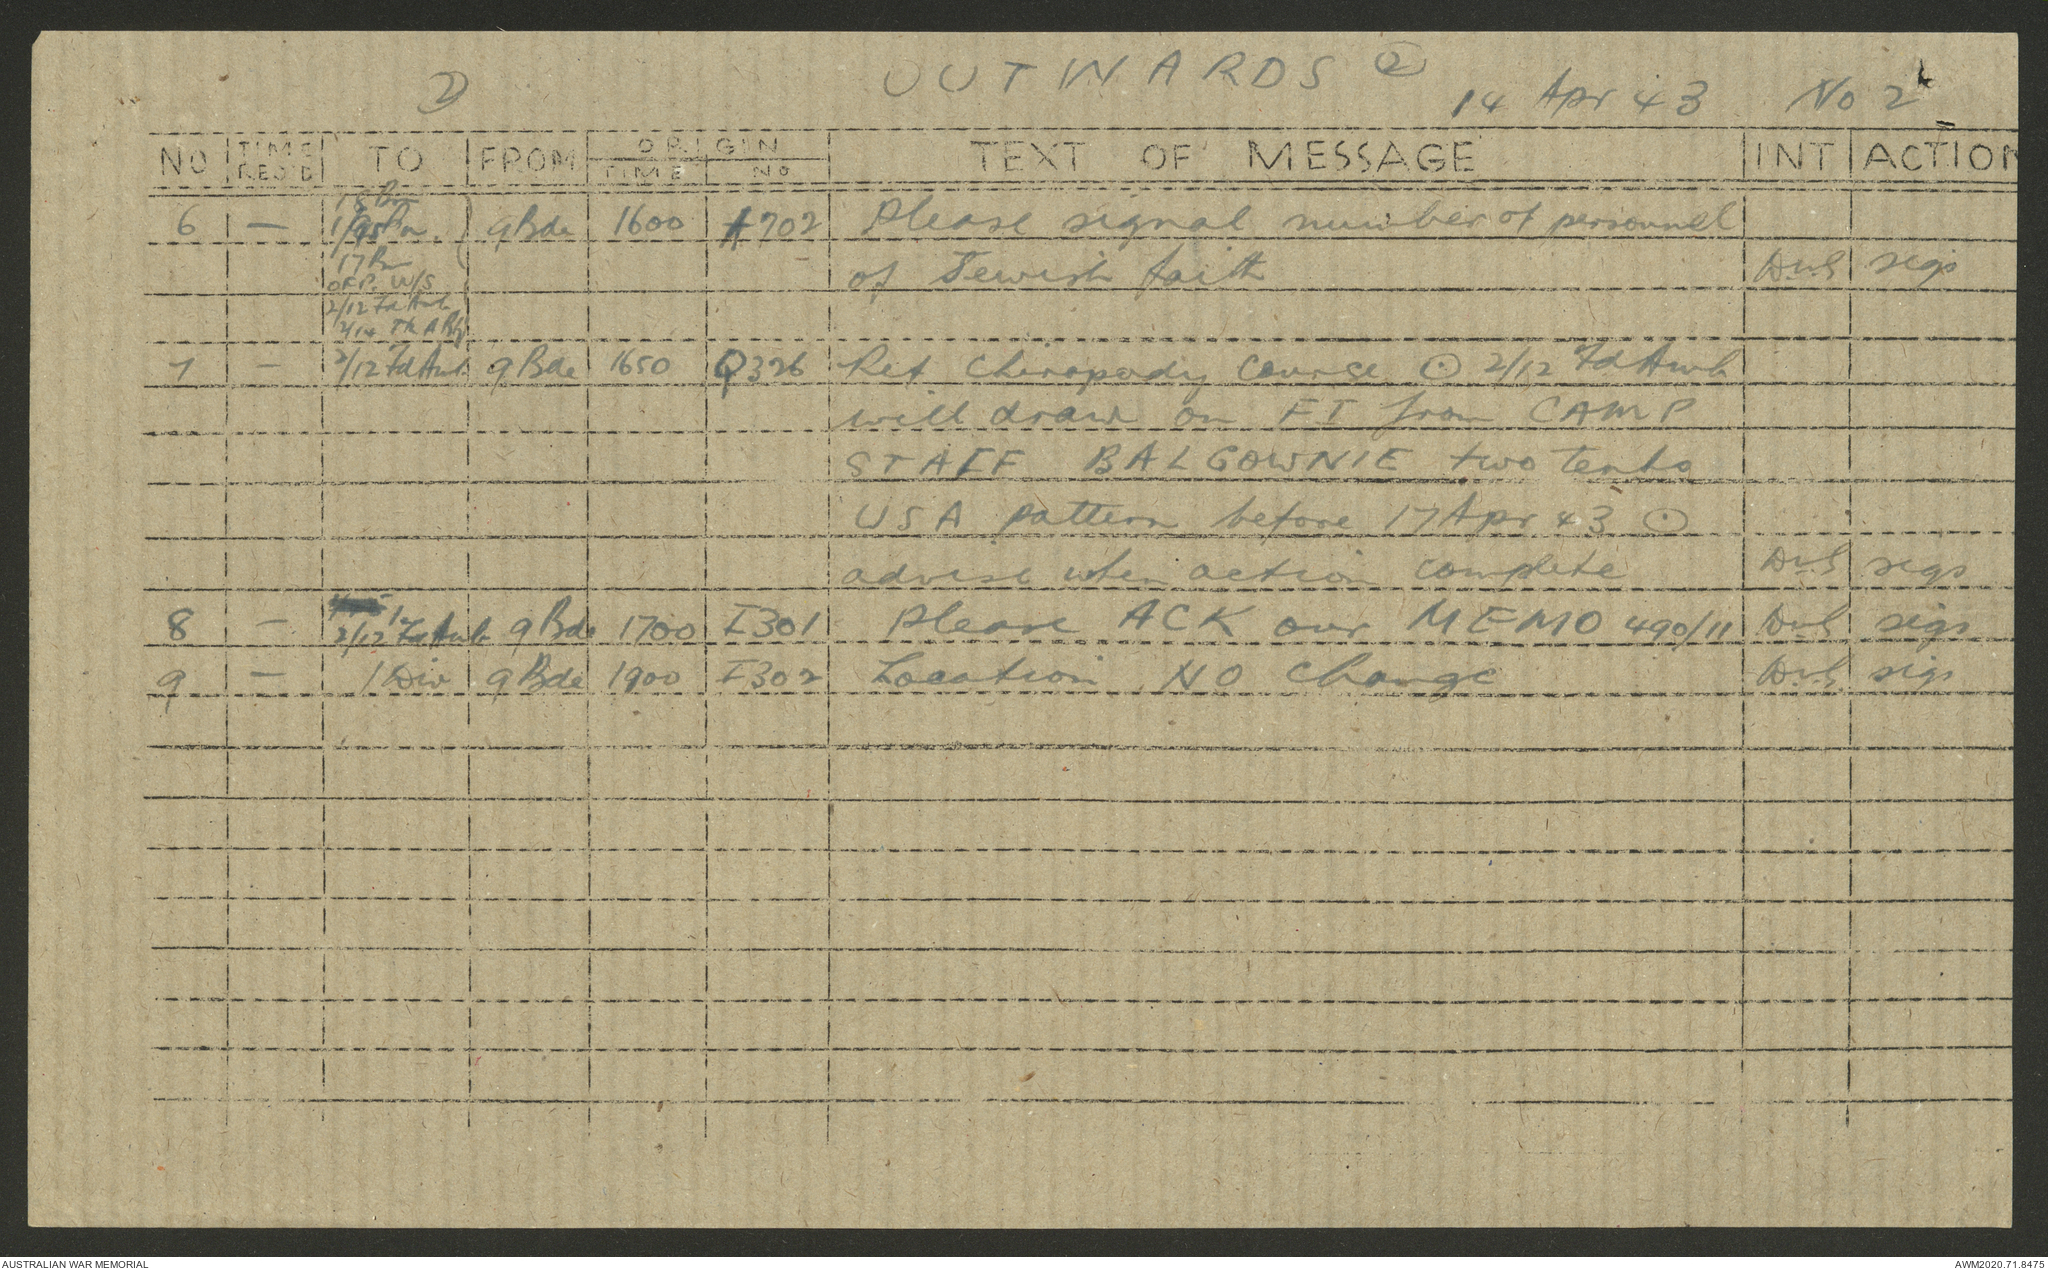 2) OUTWARDS 2 14 Apr 43 No 2
NO TIME REC'D TO FROM ORIGIN TIME NO TEXT OF MESSAGE INT ACTION
18 Bn
6 — 9 Bde 1600 A702 Please signal number of personnel
17 Bn
of Jewish faith sigs
2/12 Fd Amb
7 — 2/12 Fd Amb 9 Bde 1650 Q326 Ref Chiropody Course ⊙ 2/12 Fd Amb
will draw on FI from CAMP
STAFF BALGOWNIE two tents
USA pattern before 17 Apr 43 ⊙
advise when action complete sigs
8 — 2/12 Fd Amb 9 Bde 1700 I301 Please ACK our MEMO 490/11 sigs
9 — 1 Div 9 Bde 1900 I302 Location NO Change sigs
AUSTRALIAN WAR MEMORIAL AWM2020.71.8475